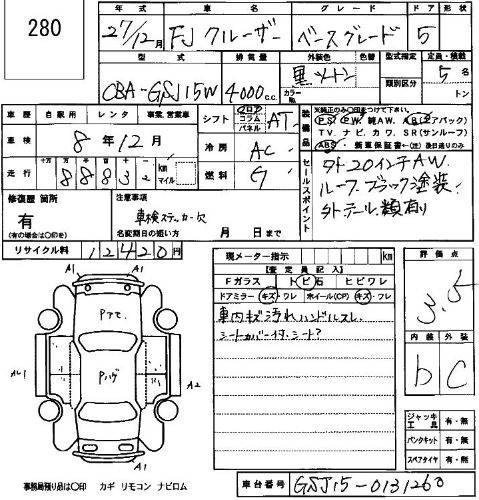 280
年式 車名 グレード ドア 形状
27/12月 FJクルーザー ベースグレード 5
型式 排気量 外装色 色替 型式指定 定員・積載
CBA-GSJ15W 4000 c.c. 黒ツートン カラーNo. 類別区分 5名 トン
車歴 自家用 レンタ 事業、営業車 シフト フロア コラム パネル AT
車検 8年12月 冷房 AC
走行 十万 万 千 百 十 km マイル 燃料 G
装備品 ※純正のみ〇印をつけて下さい。
PS PW 純AW. AB(エアバック)
TV. ナビ. カワ. SR(サンルーフ)
ABS 新車保証書←(定) 後日送りのみ
セールスポイント
外-20インチAW.
ルーフ.ブラック塗装.
外テール.類有り
修復歴 箇所 有 (有の場合は〇印を)
注意事項 車検ステッカー欠
名変期日の短い方 月 日まで
リサイクル料 12420円
現メーター指示 km
【査定員記入】
Fガラス トビ石 ヒビワレ
ドアミラー キズ・ワレ ホイール(CP) キズ・ワレ
車内キズ汚れハンドルスレ
シートカバー付.シート?
評価点
3.5
内装 外装
b C
ジャッキ 工具 有・無
パンクキット 有・無
スペアタイヤ 有・無
A1 A1
Pハゲ
A2
A1
事務局預り品は〇印 カギ リモコン ナビロム
車台番号 GSJ15-0131260